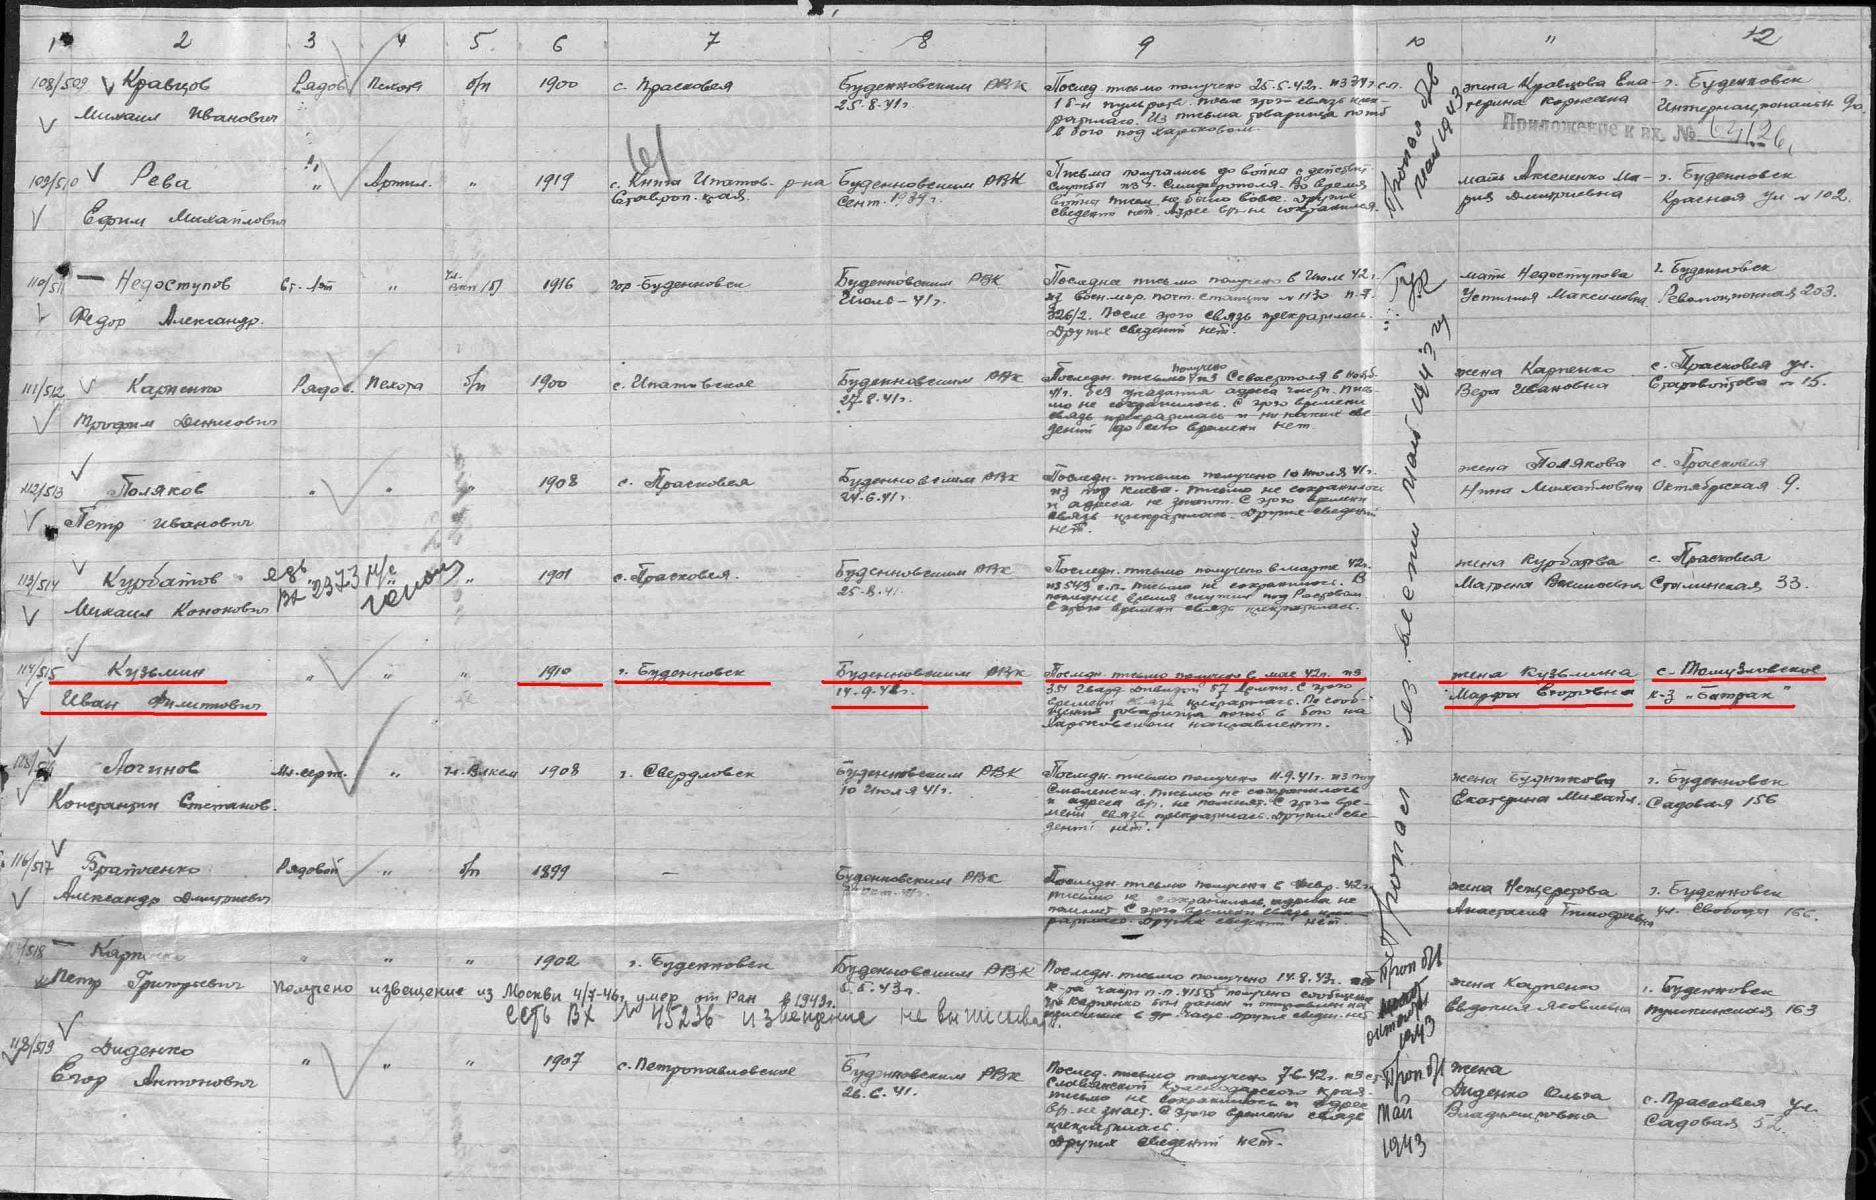 1 2 3 4 5 6 7 8 9 10 " 12
108/509 Кравцов Рядов Пехота б/п 1900 с. Прасковея Буденновским РВК Послед. письмо получено 25-5-42г. из
Михаил Иванович 25-8-41г.
в бою под Харьковом.
жена Кравцова Ека- г. Буденновск
терина Корнеевна Интернациональн. 90
Приложение к вх. №
109/510 Рева " Артил. " 1919 с. Кинга Ипатов- р-на Буденновским РВК Письма получались до войны с действ.
Ефим Михайлович Ставроп. края. Сент. 1939г. службы из г. Симферополя. Во время
войны писем не было вовсе. Других
сведений нет. Адрес в/ч не сохранился.
мать Аксененко Ма- г. Буденновск
рия Дмитриевна Красная ул № 102.
Пропал б/в
май 1943
110/511 Недоступов Ст. л-т " 1916 гор-Буденновск Буденновским РВК Последнее письмо получено в Июле 42г.
Федор Александр. Июль-41г.
326/2. После этого связь прекратилась.
Других сведений нет.
мать Недоступова г. Буденновск
Устиния Максимовна Революционная 203.
111/512 Карпенко Рядов. Пехота б/п 1900 с. Ипатовское Буденновским РВК Последн. письмо получено из Севастополя в нояб.
Трофим Денисович 27-8-41г. 41г. без указания адреса части. Пись-
мо не сохранилось. С этого времени
связь прекратилась и никаких све-
дений до сего времени нет.
жена Карпенко с. Прасковея ул.
Вера Ивановна Старовойтова № 15.
112/513 Поляков " " " 1908 с. Прасковея Буденновским РВК Последн. письмо получено 10 июля 41г.
Петр Иванович 24-6-41г. из под Киева. Письмо не сохранилось
и адреса не знают. С этого времени
связь прекратилась. Других сведений
нет.
жена Полякова с. Прасковея
Нина Михайловна Октябрьская 9.
113/514 Курбатов " 1901 с. Прасковея. Буденновским РВК Последн. письмо получено в марте 42г.
Михаил Кононович 25-8-41. из 543 с.п. письмо не сохранилось. В
последнее время служил под Ростовом
С этого времени связь прекратилась.
жена Курбатова с. Прасковея
Матрена Васильевна Сталинская 33.
114/515 Кузьмин " " " 1910 г. Буденновск Буденновским РВК Последн. письмо получено в мае 42г. из
Иван Филиппович 14-9-41г. 351 Гвард. Дивизии 57 Армии. С этого
времени связь прекратилась. По сооб-
щению товарища погиб в бою на
Харьковском направлении.
жена Кузьмина с. Томузловское
Марфа Егоровна к-з „Батрак"
Пропал без вести май 1943 г.
Логинов Мл. серж. " чл. Влксм 1908 г. Свердловск Буденновским РВК Последн. письмо получено 11-9-41г. из под
Константин Степанов. 10 Июля 41г. Смоленска. Письмо не сохранилось
и адреса вр. не помнят. С этого вре-
мени связь прекратилась. Других све-
дений нет.
жена Будникова г. Буденновск
Екатерина Михайл. Садовая 156
116/517 Братченко Рядовой " б/п 1899 — Буденновским РВК Последн. письмо получено в Февр. 42г
Александр Дмитриевич письмо не сохранилось, адреса не
помнят. С этого времени связь прек-
ратилась. Других сведений нет.
жена Нещеретова г. Буденновск
Анастасия Тимофеевна ул. Свободы 166.
Карпенко " " " 1902 г. Буденновск Буденновским РВК Последн. письмо получено 14.8.43г.
Петр Григорьевич Получено извещение из Москвы 4/7-46г. умер от Ран в 1943г. 5.5.43г.
Есть Вх № 45236 извещение не выписывать.
жена Карпенко г. Буденновск
Евдокия Яковлевна Пушкинская 163
Проп б/в
октябрь
1943
118/519 Диденко " " " 1907 с. Петропавловское Буденновским РВК Послед. письмо получено 7-6-42г. из ст.
Егор Антонович 26.6.41. Славянской Краснодарского края.
письмо не сохранилось и адрес
вр. не знает. С этого времени связь
прекратилась.
Других сведений нет.
Проп б/в
май
1943
жена
Диденко Ольга с. Прасковея ул.
Владимировна Садовая 52.